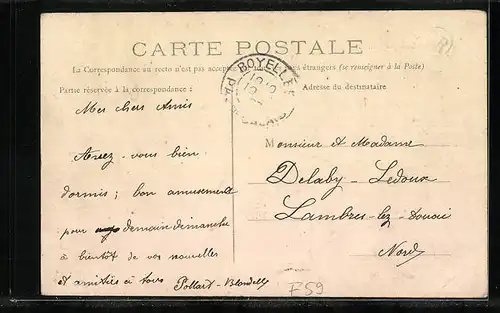 CARTE POSTALE
La Correspondance au recto n'est pas acceptée étrangers (se renseigner à la Poste)
Partie réservée à la correspondance :
Adresse du destinataire
BOYELLES
Mes chers Amis
Avez-vous bien
dormis; bon amusement
pour demain dimanche
à bientôt de vos nouvelles
et amitiés à tous
Monsieur et Madame
Delaby-Ledoux
Lambres-lez-Douai
Nord
F59